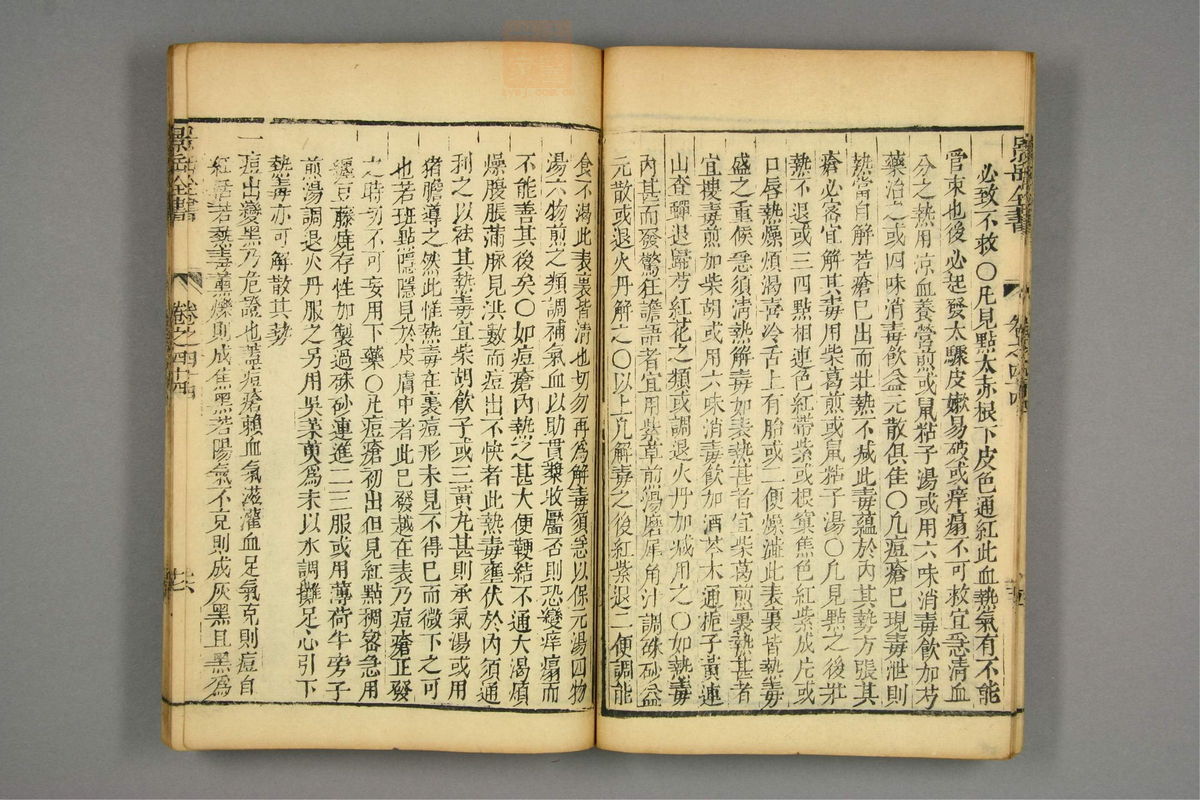 景岳全書
卷之四十四
必致不救〇凡見點太赤根下皮色通紅此血熱氣有不能
管束也後必起發太驟皮嫩易破或痒塌不可救宜急清血
分之熱用涼血養營煎或鼠粘子湯或用六味消毒飲加芍
藥治之或四味消毒飲益元散俱佳〇凡痘瘡已現毒泄則
熱當自解若瘡已出而壯熱不减此毒蘊於內其勢方張其
瘡必密宜解其毒用柴葛煎或鼠粘子湯〇凡見點之後壯
熱不退或三四點相連色紅帶紫或根窠焦色紅紫成片或
口唇熱燥煩渴喜冷舌上有胎或二便燥澁此表裏皆熱毒
盛之重候急須清熱解毒如表熱甚者宜柴葛煎裏熱甚者
宜搜毒煎加柴胡或用六味消毒飲加酒芩木通梔子黃連
山查蟬退歸芍紅花之類或調退火丹加减用之〇如熱毒
內甚而發驚狂譫語者宜用紫草煎湯磨犀角汁調硃砂益
元散或退火丹解之〇以上凡解毒之後紅紫退二便調能
食不渴此表裏皆清也切勿再爲解毒須急以保元湯四物
湯六物煎之類調補氣血以助貫漿收靨否則恐變痒塌而
不能善其後矣〇如痘瘡內熱之甚大便鞕結不通大渴煩
燥腹脹滿脉見洪數而痘出不快者此熱毒壅伏於內須通
利之以祛其熱毒宜柴胡飲子或三黃丸甚則承氣湯或用
猪膽導之然此惟熱毒在裏痘形未見不得已而微下之可
也若班點隱隱見於皮膚中者此已發越在表乃痘瘡正發
之時切不可妄用下藥〇凡痘瘡初出但見紅點稠密急用
纏豆藤燒存性加製過硃砂連進二三服或用薄荷牛旁子
煎湯調退火丹服之另用吳茱萸爲末以水調攤足心引下
熱毒亦可解散其勢
一痘出變黑乃危證也蓋痘瘡賴血氣滋灌血足氣克則痘自
紅活若熱毒薰爍則成焦黑若陽氣不克則成灰黑且黑爲
景岳全書
卷之四十四